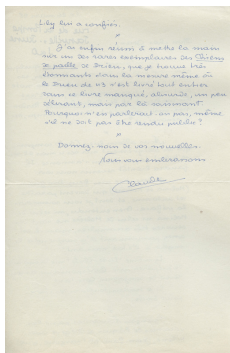 Lily lui a confiés.
*
J'ai enfin réussi à mettre la main
sur un des rares exemplaires des Chiens
de paille de Drieu, que je trouve très
étonnants dans la mesure même où
le Drieu de 43 s'est livré tout entier
dans ce livre manqué, alourdi, un peu
délirant, mais par là saisissant.
Pourquoi n'en parlerait-on pas, même
s'il ne doit pas être rendu public ?
*
Donnez-nous de vos nouvelles.
Nous vous embrassons